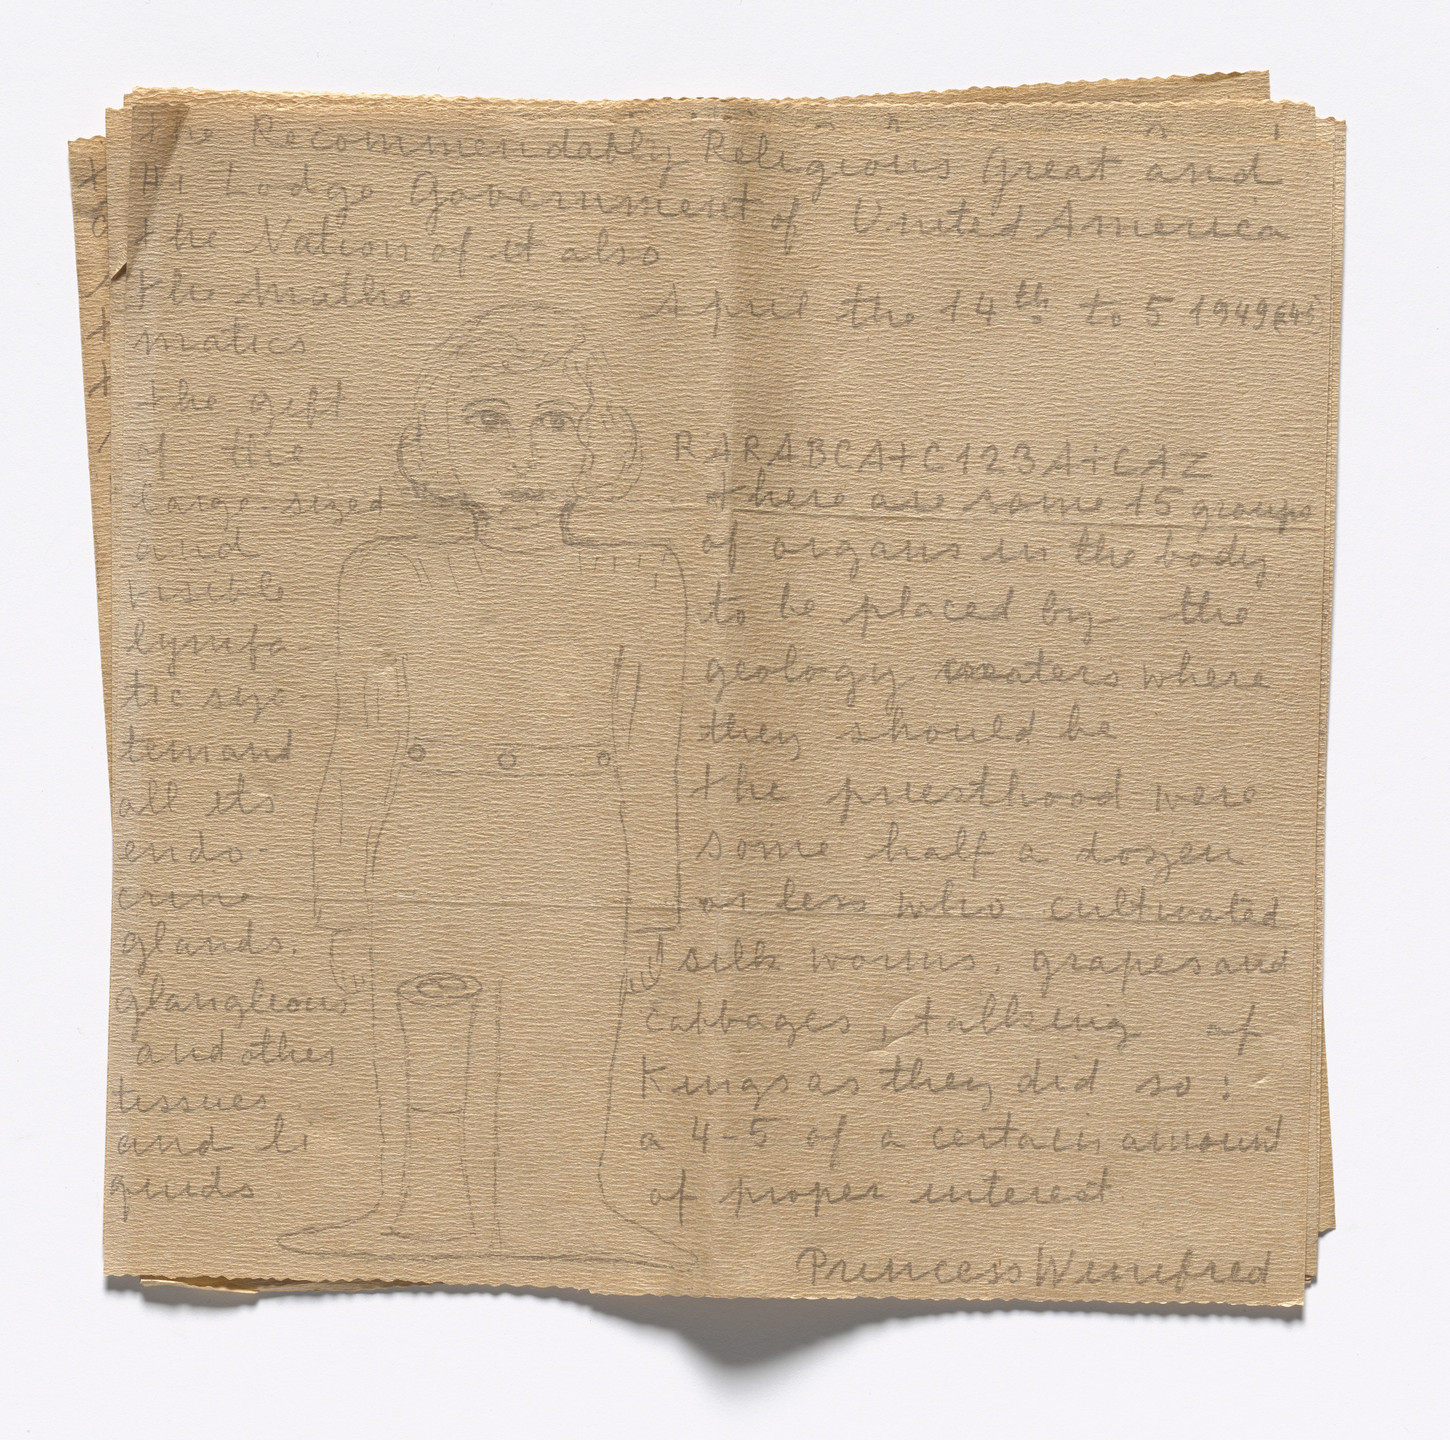 the Recommendably Religious great and
Hi Lodge Government of United America
the Nation of it also
the mathe
matics
April the 14th to 5 1949
the gift
of the
large-sized
and
visible
lymfa-
tic sys-
tem and
all its
endo
crine
glands.
glanglious
and other
tissues
and li
quids.
RARABCA+C123A+CAZ
there are some 15 groups
of organs in the body
to be placed by the
geology waters where
they should be
the priesthood were
some half a dozen
or less who cultivated
silk worms, grapes and
cabbages, talking of
Kings as they did so:
a 4-5 of a certain amount
of proper interest
Princess Winifred